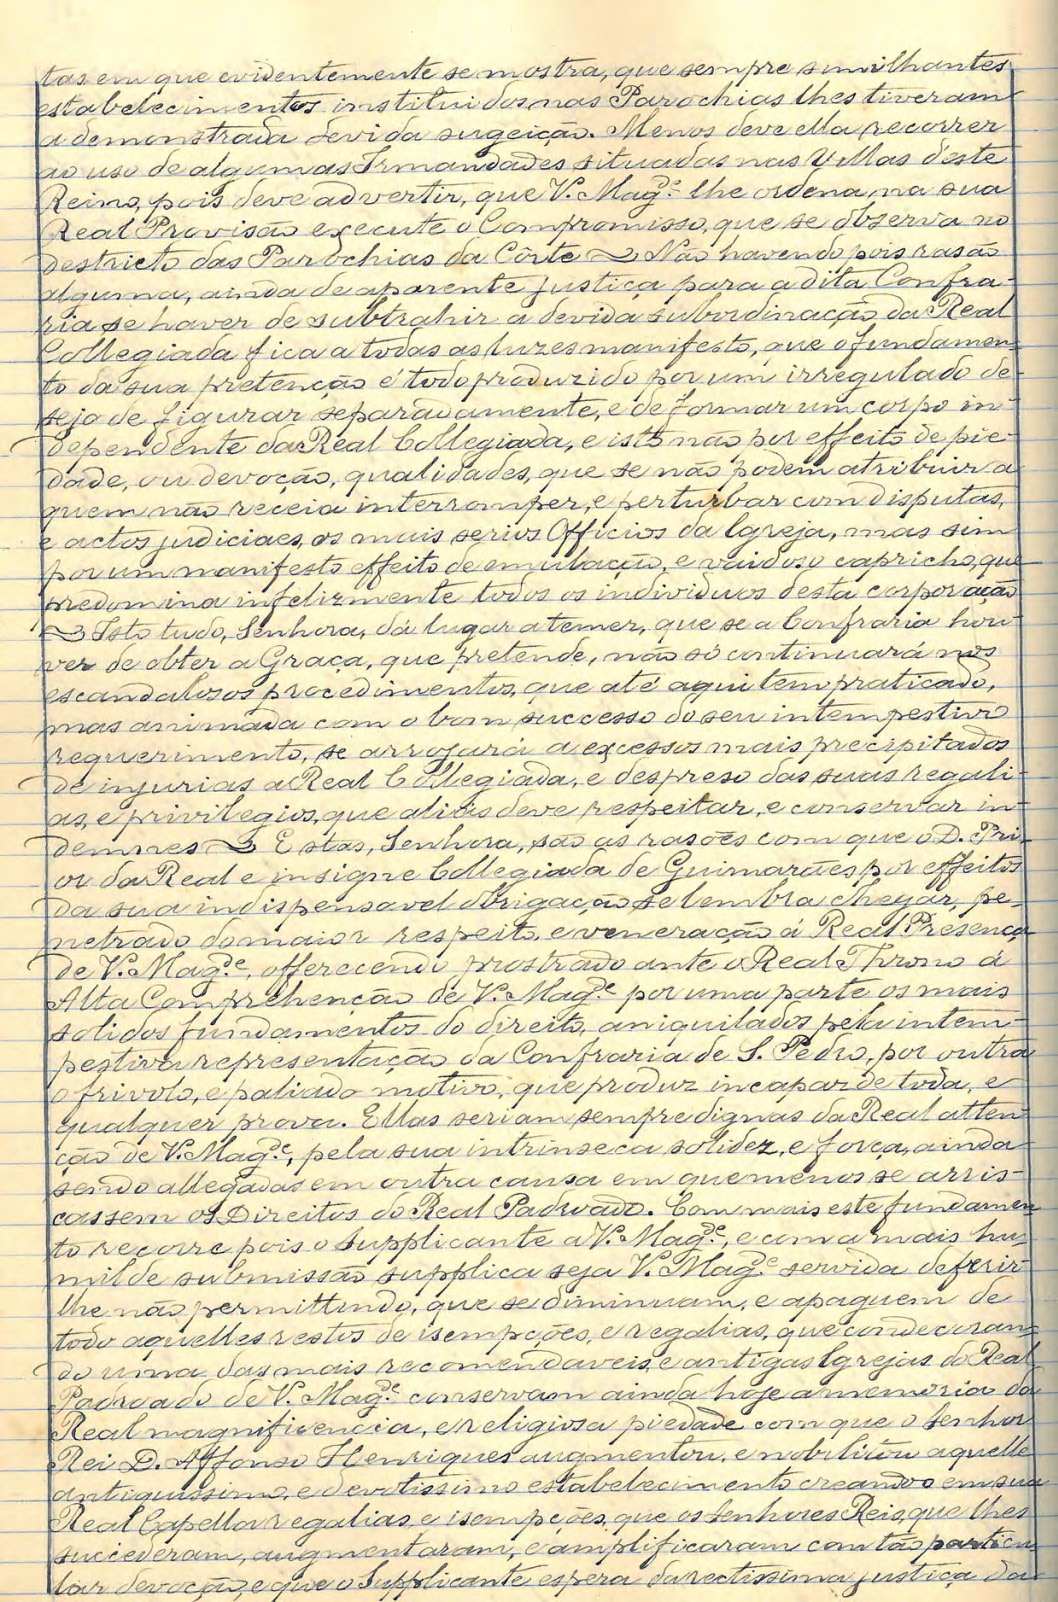 tas em que evidentemente se mostra, que sempre similhantes
estabelecimentos instituidos nas Parochias lhes tiveram
a demonstrada devida sugeição. Menos deve ella recorrer
ao uso de algumas Irmandades situadas nas Villas deste
Reino, pois deve advertir, que V. Mag.de lhe ordena, na sua
Real Provisão execute o Compromisso, que se observa no
destricto das Parochias da Côrte ~ Não havendo pois rasão
alguma, ainda de aparente justiça para a dita Confra-
ria se haver de subtrahir a devida subordinação da Real
Collegiada fica a todas as luzes manifesto, que o fundamen-
to da sua pretenção é todo produzido por um irregulado de-
sejo de figurar separadamente, e de formar um corpo in-
dependente da Real Collegiada, e isto não por effeito de pie-
dade, ou devoção, qualidades, que se não podem atribuir a
quem não receia interromper, e perturbar com disputas,
e actos judiciaes, os mais serios Officios da Igreja, mas sim
por um manifesto effeito de emulação, e vaidoso capricho, que
predomina infelizmente todos os individuos desta corporação
~ Isto tudo, Senhora, dá lugar a temer, que se a Confraria hou-
ver de obter a Graça, que pretende, não só continuará nos
escandalosos procedimentos, que até aqui tem praticado,
mas animada com o bom successo do seu intempestivo
requerimento, se arrojará a excessos mais precipitados
de injurias a Real Collegiada, e despreso das suas regali-
as, e privilegios, que aliás deve respeitar, e conservar in-
demnes ~ Estas, Senhora, são as rasões com que o D. Pri-
or da Real e insigne Collegiada de Guimarães por effeitos
da sua indispensavel obrigação se lembra chegar, pe-
netrado do maior respeito, e veneração á Real Presença
de V. Mag.de, offerecendo prostrado ante o Real Throno á
Alta Comprehenção de V. Mag.e por uma parte os mais
solidos fundamentos do direito, aniquilados pela intem-
pestiva representação da Confraria de S. Pedro, por outra
o frivolo, e paliado motivo, que produz incapaz de toda, e
qualquer prova. Ellas seriam sempre dignas da Real atten
ção de V. Mag.de, pela sua intrinseca solidez, e força, ainda
sendo allegadas em outra causa em que menos se arris-
cassem os Direitos do Real Padroado. Com mais este fundamen
to recorre pois o Supplicante a V. Mag.de, e com a mais hu-
milde submissão supplica seja V. Mag.e servida deferir-
lhe não permittindo, que se diminuam, e apaguem de
todo aquelles restos de isempções, e regalias, que condecoran-
do uma das mais recomendaveis, e antigas Igrejas do Real
Padroado de V. Mag.de conservam ainda hoje a memoria da
Real magnificencia, e religiosa piedade com que o Senhor
Rei D. Affonso Henriques augmentou, e nobilitou aquelle
antiquissimo, e devotissimo estabelecimento creando o em sua
Real Capella regalias, e isempções, que os Senhores Reis, que lhes
succederam, augmentaram, e amplificaram com tão particu
lar devoção, e que o Supplicante espera da rectissima justiça da